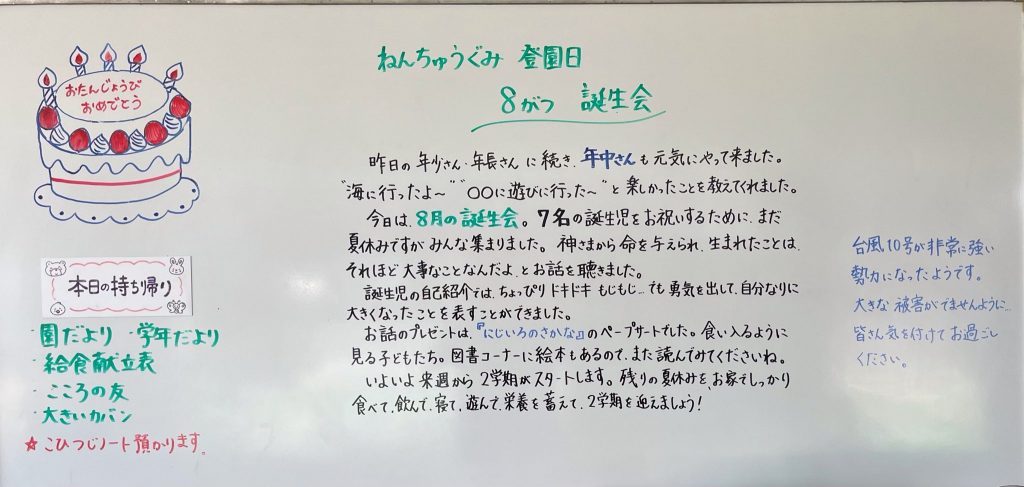 おたんじょうび
おめでとう
ねんちゅうぐみ 登園日
8がつ 誕生会
昨日の年少さん・年長さんに続き、年中さんも元気にやって来ました。
"海に行ったよ〜" "○○に遊びに行った〜"と楽しかったことを教えてくれました。
今日は、8月の誕生会。7名の誕生児をお祝いするために、まだ
夏休みですがみんな集まりました。神さまから命を与えられ、生まれたことは、
それほど大事なことなんだよ、とお話を聴きました。
誕生児の自己紹介では、ちょっぴりドキドキもじもじ…でも勇気を出して、自分なりに
大きくなったことを表すことができました。
お話のプレゼントは、『にじいろのさかな』のペープサートでした。食い入るように
見る子どもたち。図書コーナーに絵本もあるので、また読んでみてくださいね。
いよいよ来週から2学期がスタートします。残りの夏休みを、お家でしっかり
食べて、飲んで、寝て、遊んで、栄養を蓄えて、2学期を迎えましょう!
本日の持ち帰り
・園だより ・学年だより
・給食献立表
・こころの友
・大きいカバン
☆こひつじノート預かります。
台風10号が非常に強い
勢力になったようです。
大きな被害がでませんように…
皆さん気を付けてお過ごし
ください。